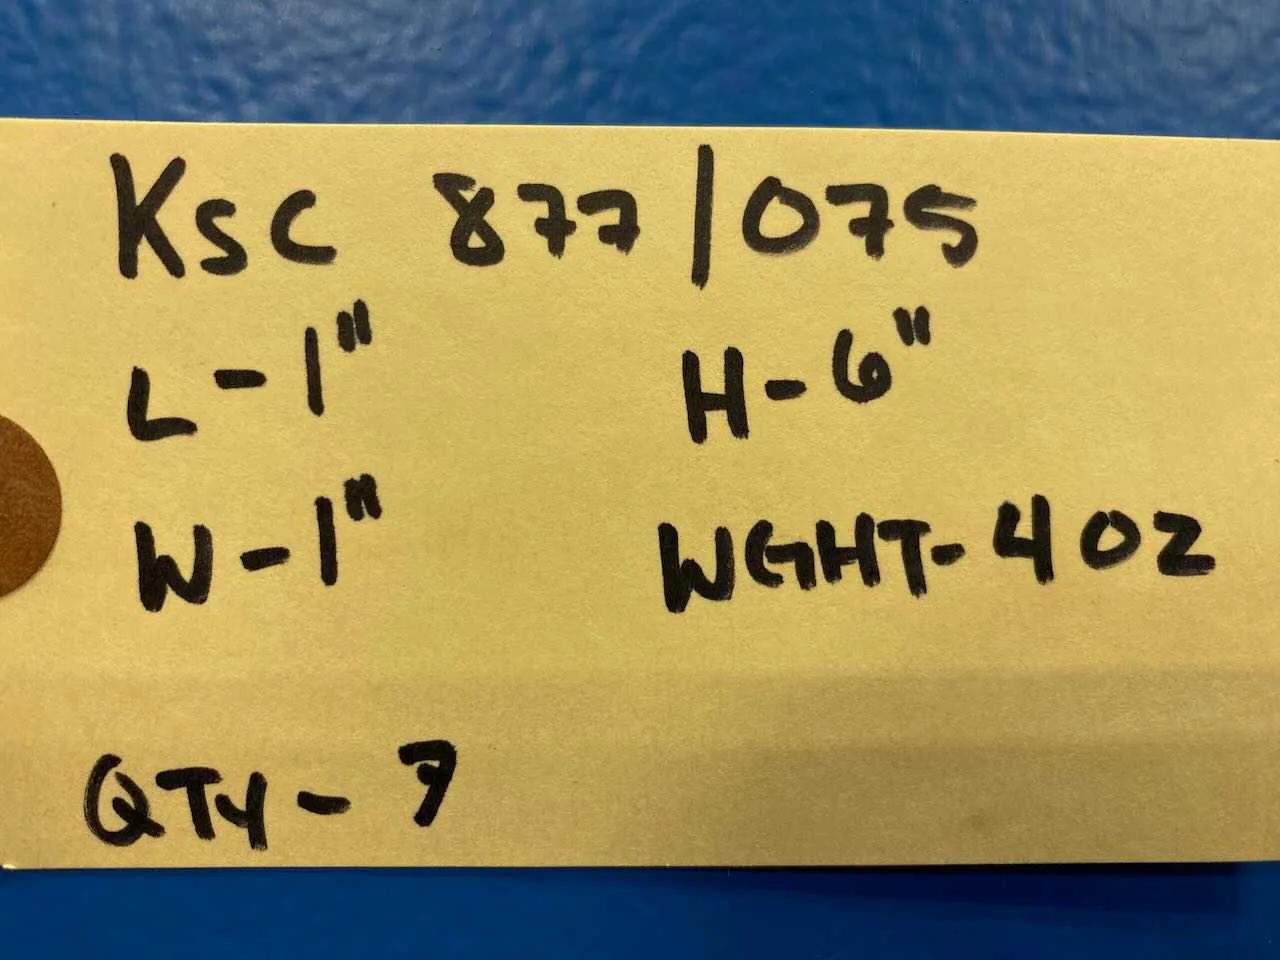 KSC 877/075
L-1" H-6"
W-1" WGHT-4 OZ
QTY-7